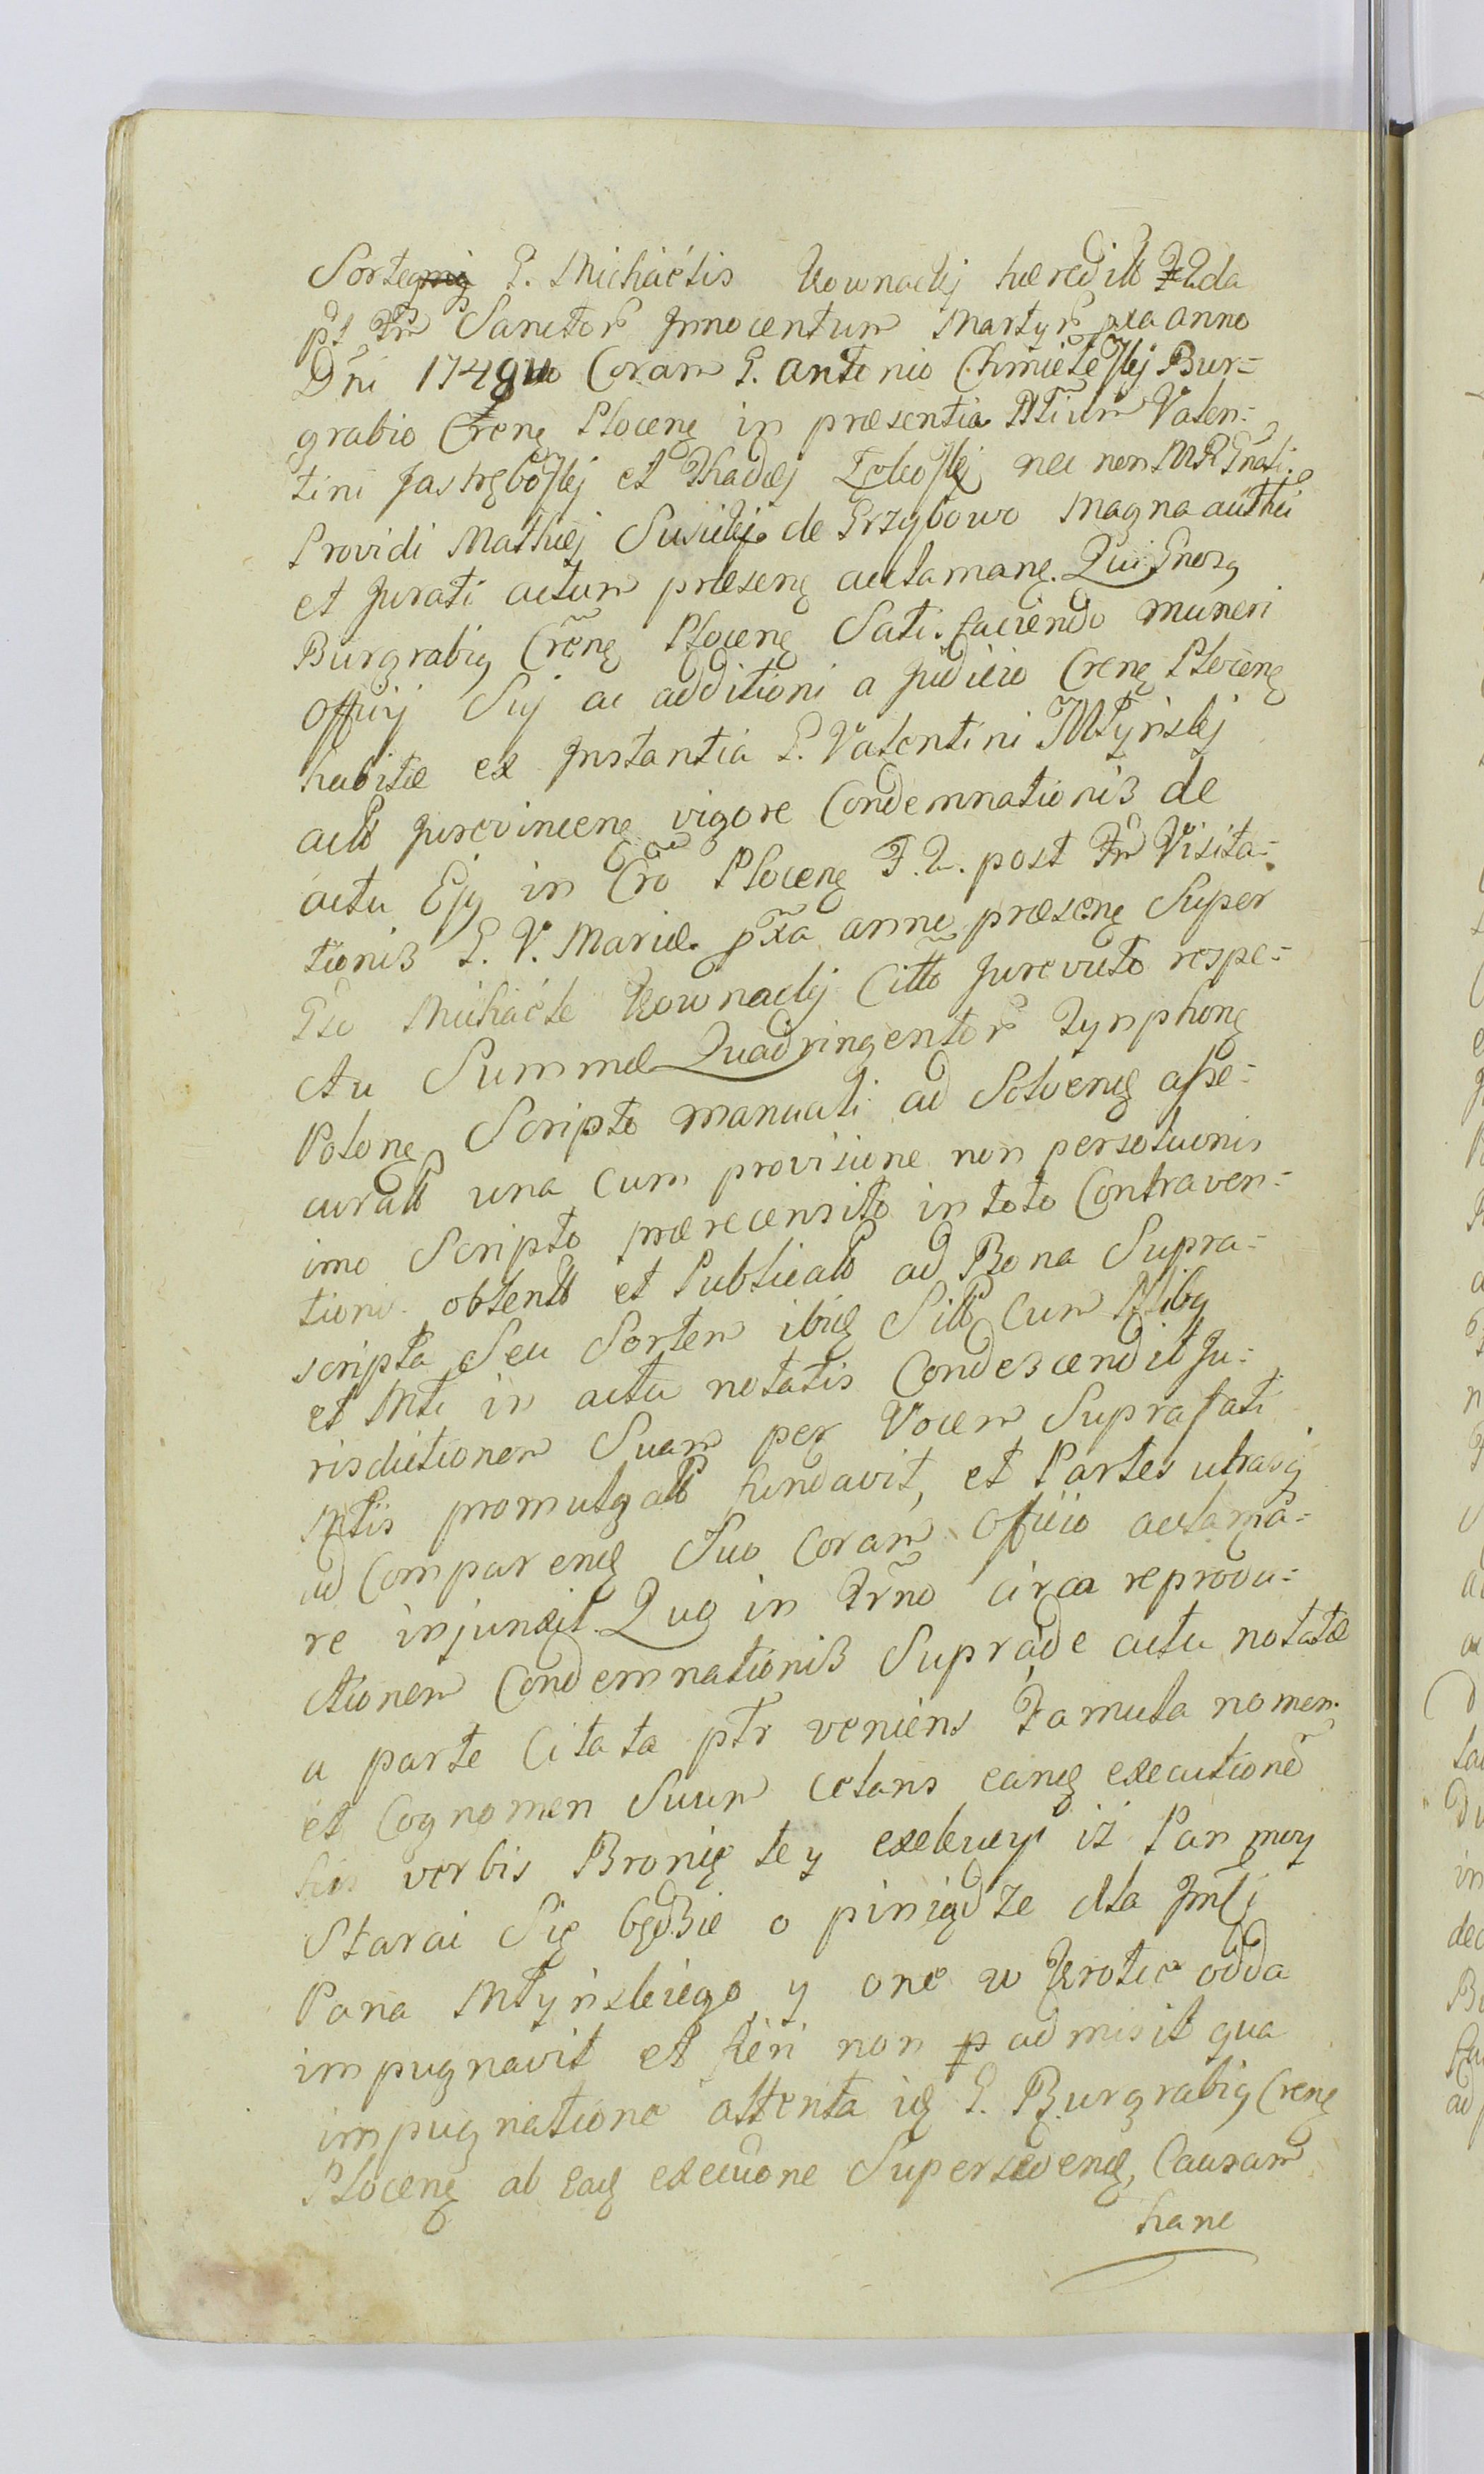 Sorteq G. Michaelis Kownackj hæredit F 2da
pt Fm Sanctor Innocentum Martyr pxa anno
Dni 1748vo Coram G. Antonio Chmielesskj Bur=
grabio Crenę Plocenę in præsentia Nlium Valen=
tini Jastrębosskj et Thadæj nec non MR Gnali
Providi Mathiej de Grzybowo Magna authti
et Jurati actum præsenę acclamanę. Qui Gnosq
Burgrabiq Crenę Plocenę Satisfaciendo muneri
Officij Suj ac additioni a Judicio Crenę Plocenę
habitæ ex Instantia G. Valentini Młyńskj
actt Jurevincenę vigore Condemnationis de
actu Ejq in Cro Plocenę F. 2. post Fm Visita=
tionis B. V. Mariæ pxa anni præsenę Super
Gso Michaële Kownackj Citto Jurevicto respe=
ctu Summæ Quadringentor Tynphonę
Polonę Scripto manuali ad Solvendę asse=
curatt una cum provisione non persolutionis
imo Scripto prærecensito in toto Contraven=
tioni obtentt et Publicatt ad Bona Supra=
scripta Seu Sortem ibidę Sitt Cum Nlibq
et Mti in actu notatis Condescendit Ju=
risdictionem Suam per Vocem Suprafati
Mtis promulgatt fundavit, et Partes utrasq
ad Comparendę Suo Coram Officio acclama=
re injunxit. Quo in Trno circa reprodu=
ctionem Condemnationis Supra de actu notatæ
a parte Citata ptr veniens Famula nomen
et Cognomen Suum celans eandę executionē
his verbis Bronię tey exekucyi iż Pan moy
Starac Się będzie o piniądze dla Jmći
Pana Młyńskiego y one w krotce odda
impugnavit et fieri non p admisit qua
impugnatione attenta idę G. Burgrabiq Crenę
Plocenę ab eadę execuõne Supersedendę, Causam
hanc